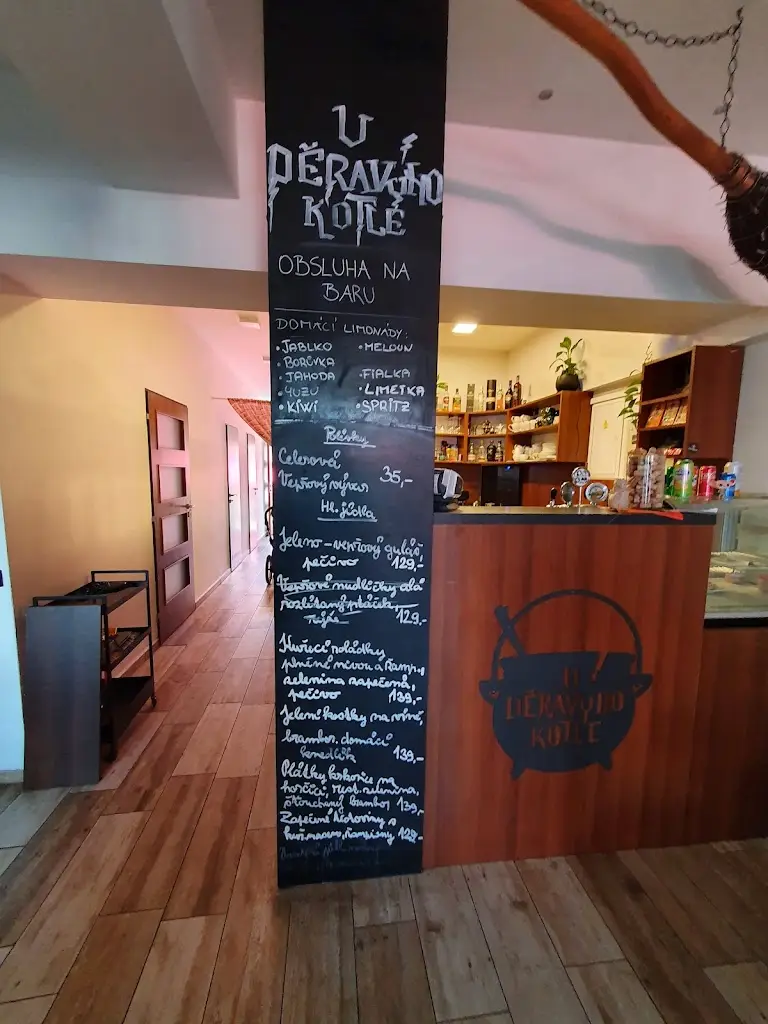 U
DĚRAVÝHO
KOTLE
OBSLUHA NA
BARU
DOMÁCÍ LIMONÁDY:
•JABLKO •MELOUN
•BORŮVKA
•JAHODA •FIALKA
•YUZU •LIMETKA
•KIWI •SPRITZ
Polévky
Celerová
Vepřový vývar 35,-
Hl. jídla
Jeleno-vepřový guláš,
pečivo 129,-
Vepřové nudličky alá
rozlítaný ptáček,
rýže 129,-
Kuřecí roládky
plněné nivou a žamp.,
zelenina zapečená,
pečivo 139,-
Jelení kostky na víně,
brambor. domácí
knedlík 139,-
Plátky krkovice na
hořčici, rest. zelenina,
šťouchaný brambor 139,-
Zapečené těstoviny s
kuř. masem, žampiony 129,-
U
DĚRAVÝHO
KOTLE